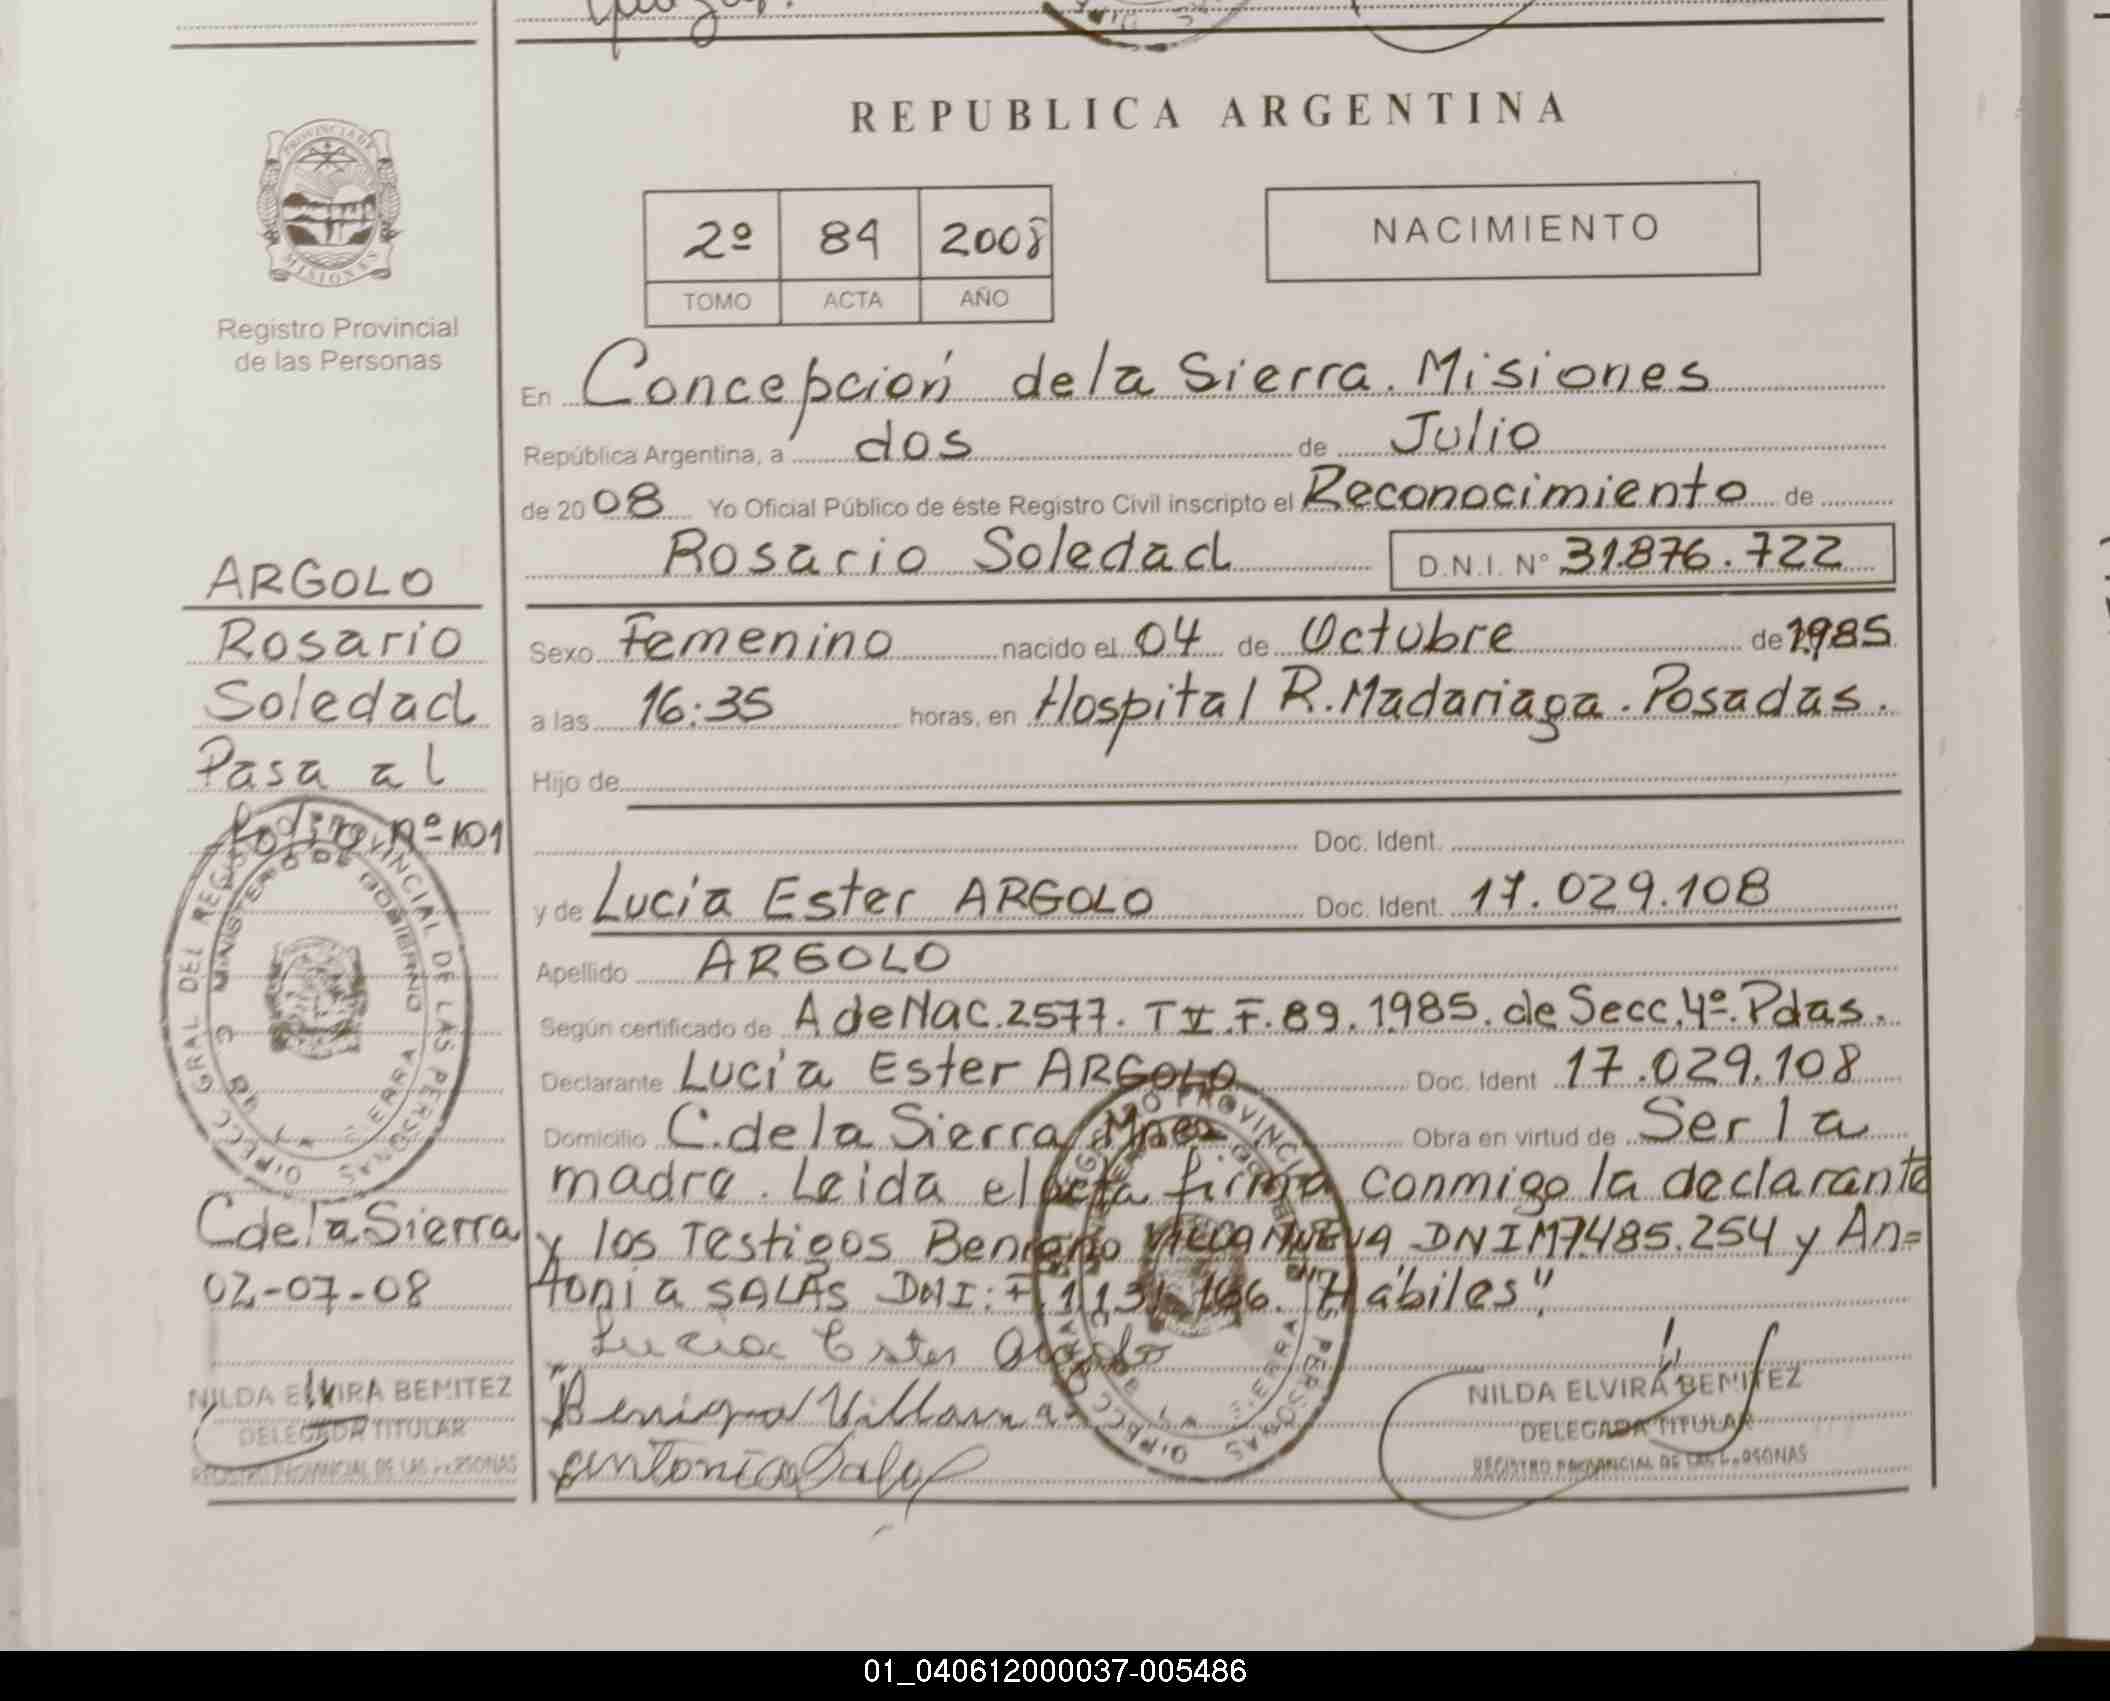 REPUBLICA ARGENTINA
PROVINCIA DE
MISIONES
Registro Provincial
de las Personas
2º 84 2008
TOMO ACTA AÑO
NACIMIENTO
En Concepción de la Sierra. Misiones
República Argentina, a dos de Julio
de 2008 Yo Oficial Público de éste Registro Civil inscripto el Reconocimiento de
Rosario Soledad D.N.I. Nº 31.876.722
Sexo Femenino nacido el 04 de Octubre de 1985
a las 16:35 horas, en Hospital R. Madariaga. Posadas.
Hijo de
Doc. Ident.
y de Lucia Ester ARGOLO Doc. Ident. 17.029.108
Apellido ARGOLO
Según certificado de A de Nac. 2577. T V. F. 89. 1985. de Secc. 4º. Pdas.
Declarante Lucia Ester ARGOLO Doc. Ident 17.029.108
Domicilio C. de la Sierra Mnes Obra en virtud de Ser la
madre. Leida el acta firma conmigo la declarante
y los Testigos Benigno VILLANUEVA DNI M7.485.254 y An=
tonia SALAS DNI: F. "Hábiles".
Lucia Ester Argolo
Benigno Villanueva
Antonia Salas
NILDA ELVIRA BENITEZ
DELEGADA TITULAR
REGISTRO PROVINCIAL DE LAS PERSONAS
ARGOLO
Rosario
Soledad
Pasa al
Folio nº 101
DIRECC GRAL DEL REGISTRO PROVINCIAL DE LAS PERSONAS
MINISTERIO DE GOBIERNO
C de la Sierra
02-07-08
NILDA ELVIRA BENITEZ
DELEGADA TITULAR
REGISTRO PROVINCIAL DE LAS PERSONAS
01_040612000037-005486